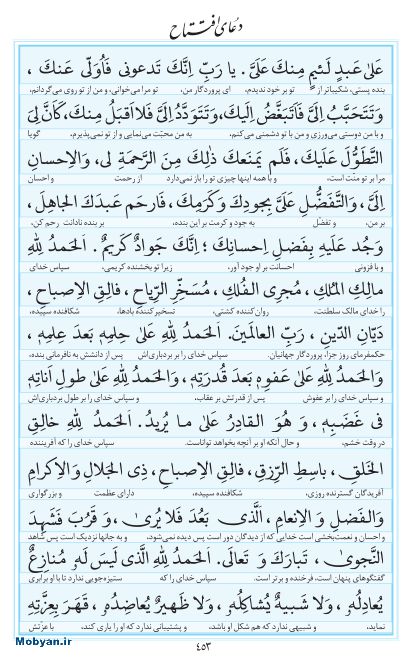 دعای افتتاح
عَلیٰ عَبدٍ لَئیمٍ مِنكَ عَلَیَّ. یا رَبِّ اِنَّكَ تَدعونی فَاُوَلّی عَنكَ ،
بنده پستی، شکیباتر از تو بر خود ندیدم، ای پروردگار من، تو مرا می‌خوانی، و من از تو روی می‌گردانم،
وَ تَتَحَبَّبُ اِلَیَّ فَاَتَبَغَّضُ اِلَیكَ، وَ تَتَوَدَّدُ اِلَیَّ فَلا اَقبَلُ مِنكَ، كَاَنَّ لِیَ
و با من دوستی می‌ورزی و من با تو دشمنی می‌کنم، به من محبّت می‌نمایی و از تو نمی‌پذیرم، گویا
التَّطَوُّلَ عَلَیكَ، فَلَم یَمنَعكَ ذٰلِكَ مِنَ الرَّحمَةِ لی، وَ الاِحسانِ
مرا بر تو منت است، و با همه اینها چیزی تو را باز نمی‌دارد از رحمت و احسان
اِلَیَّ، وَ التَّفَضُّلِ عَلَیَّ بِجودِكَ وَ كَرَمِكَ، فَارحَم عَبدَكَ الجاهِلَ،
بر من، و تفضل به جود و کرمت بر این بنده، بر بنده نادانت رحم کن،
وَ جُد عَلَیهِ بِفَضلِ اِحسانِكَ ؛ اِنَّكَ جَوادٌ كَریمٌ. اَلحَمدُ لِلّٰهِ
و با فزونی احسانت بر او جود آور، زیرا تو بخشنده کریمی، سپاس خدای
مالِكِ المُلكِ، مُجرِی الفُلكِ، مُسَخِّرِ الرِّیاحِ، فالِقِ الاِصباحِ،
را خدای مالک سلطنت، روان کننده کشتی، تسخیر کننده بادها، شکافنده سپیده،
دَیّانِ الدّینِ، رَبِّ العالَمینَ. اَلحَمدُ لِلّٰهِ عَلیٰ حِلمِهِ بَعدَ عِلمِهِ،
حکمفرمای روز جزا، پروردگار جهانیان. سپاس خدای را بر بردباری‌اش پس از دانشش به نافرمانی بنده،
وَ الحَمدُ لِلّٰهِ عَلیٰ عَفوِهِ بَعدَ قُدرَتِهِ، وَ الحَمدُ لِلّٰهِ عَلیٰ طولِ اَناتِهِ
و سپاس خدای را بر عفوش پس از قدرتش بر عقاب، و سپاس خدای را بر طول بردباری‌اش
فی غَضَبِهِ، وَ هُوَ القادِرُ عَلیٰ ما یُریدُ. اَلحَمدُ لِلّٰهِ خالِقِ
در وقت خشم، و حال آنکه او بر آنچه بخواهد تواناست. سپاس خدای را که آفریننده
الخَلقِ، باسِطِ الرِّزقِ، فالِقِ الاِصباحِ، ذِی الجَلالِ وَ الاِکرامِ
آفریدگان گسترنده روزی، شکافنده سپیده، دارای عظمت و بزرگواری
وَ الفَضلِ وَ الاِنعامِ، اَلَّذی بَعُدَ فَلا یُریٰ، وَ قَرُبَ فَشَهِدَ
و احسان و نعمت‌بخشی است خدایی که از دیدگان دور است پس دیده نمی‌شود، و به جانها نزدیک است پس گواهد
النَّجویٰ، تَبارَكَ وَ تَعالیٰ. اَلحَمدُ لِلّٰهِ الَّذی لَیسَ لَهُ مُنازِعٌ
گفتگوهای پنهان است، فرخنده و برتر است. سپاس خدای را که ستیزه‌جویی ندارد تا با او برابری
یُعادِلُهُ، وَ لا شَبیهٌ یُشاكِلُهُ، وَ لا ظَهیرٌ یُعاضِدُهُ، قَهَرَ بِعِزَّتِهِ
نماید، و شبیهی ندارد که هم شکل او باشد، و پشتیبانی ندارد که او را یاری کند، با عزّتش
٤٥٣
Mobyan.ir